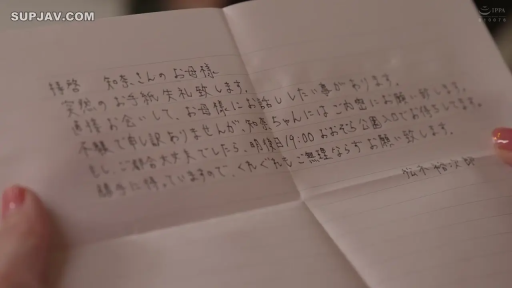 SUPJAV.COM
拝啓 知奈さんのお母様
突然のお手紙失礼致します。
直接お会いして、お母様にお話ししたい事があります。
不躾で申し訳ありませんが、知奈ちゃんにはご内密にお願い致します。
もし、ご都合大丈夫でしたら、明後日19:00 おおぞら公園入口でお待ちしてます。
勝手に待っていますので、くれぐれもご無理ならずお願い致します。